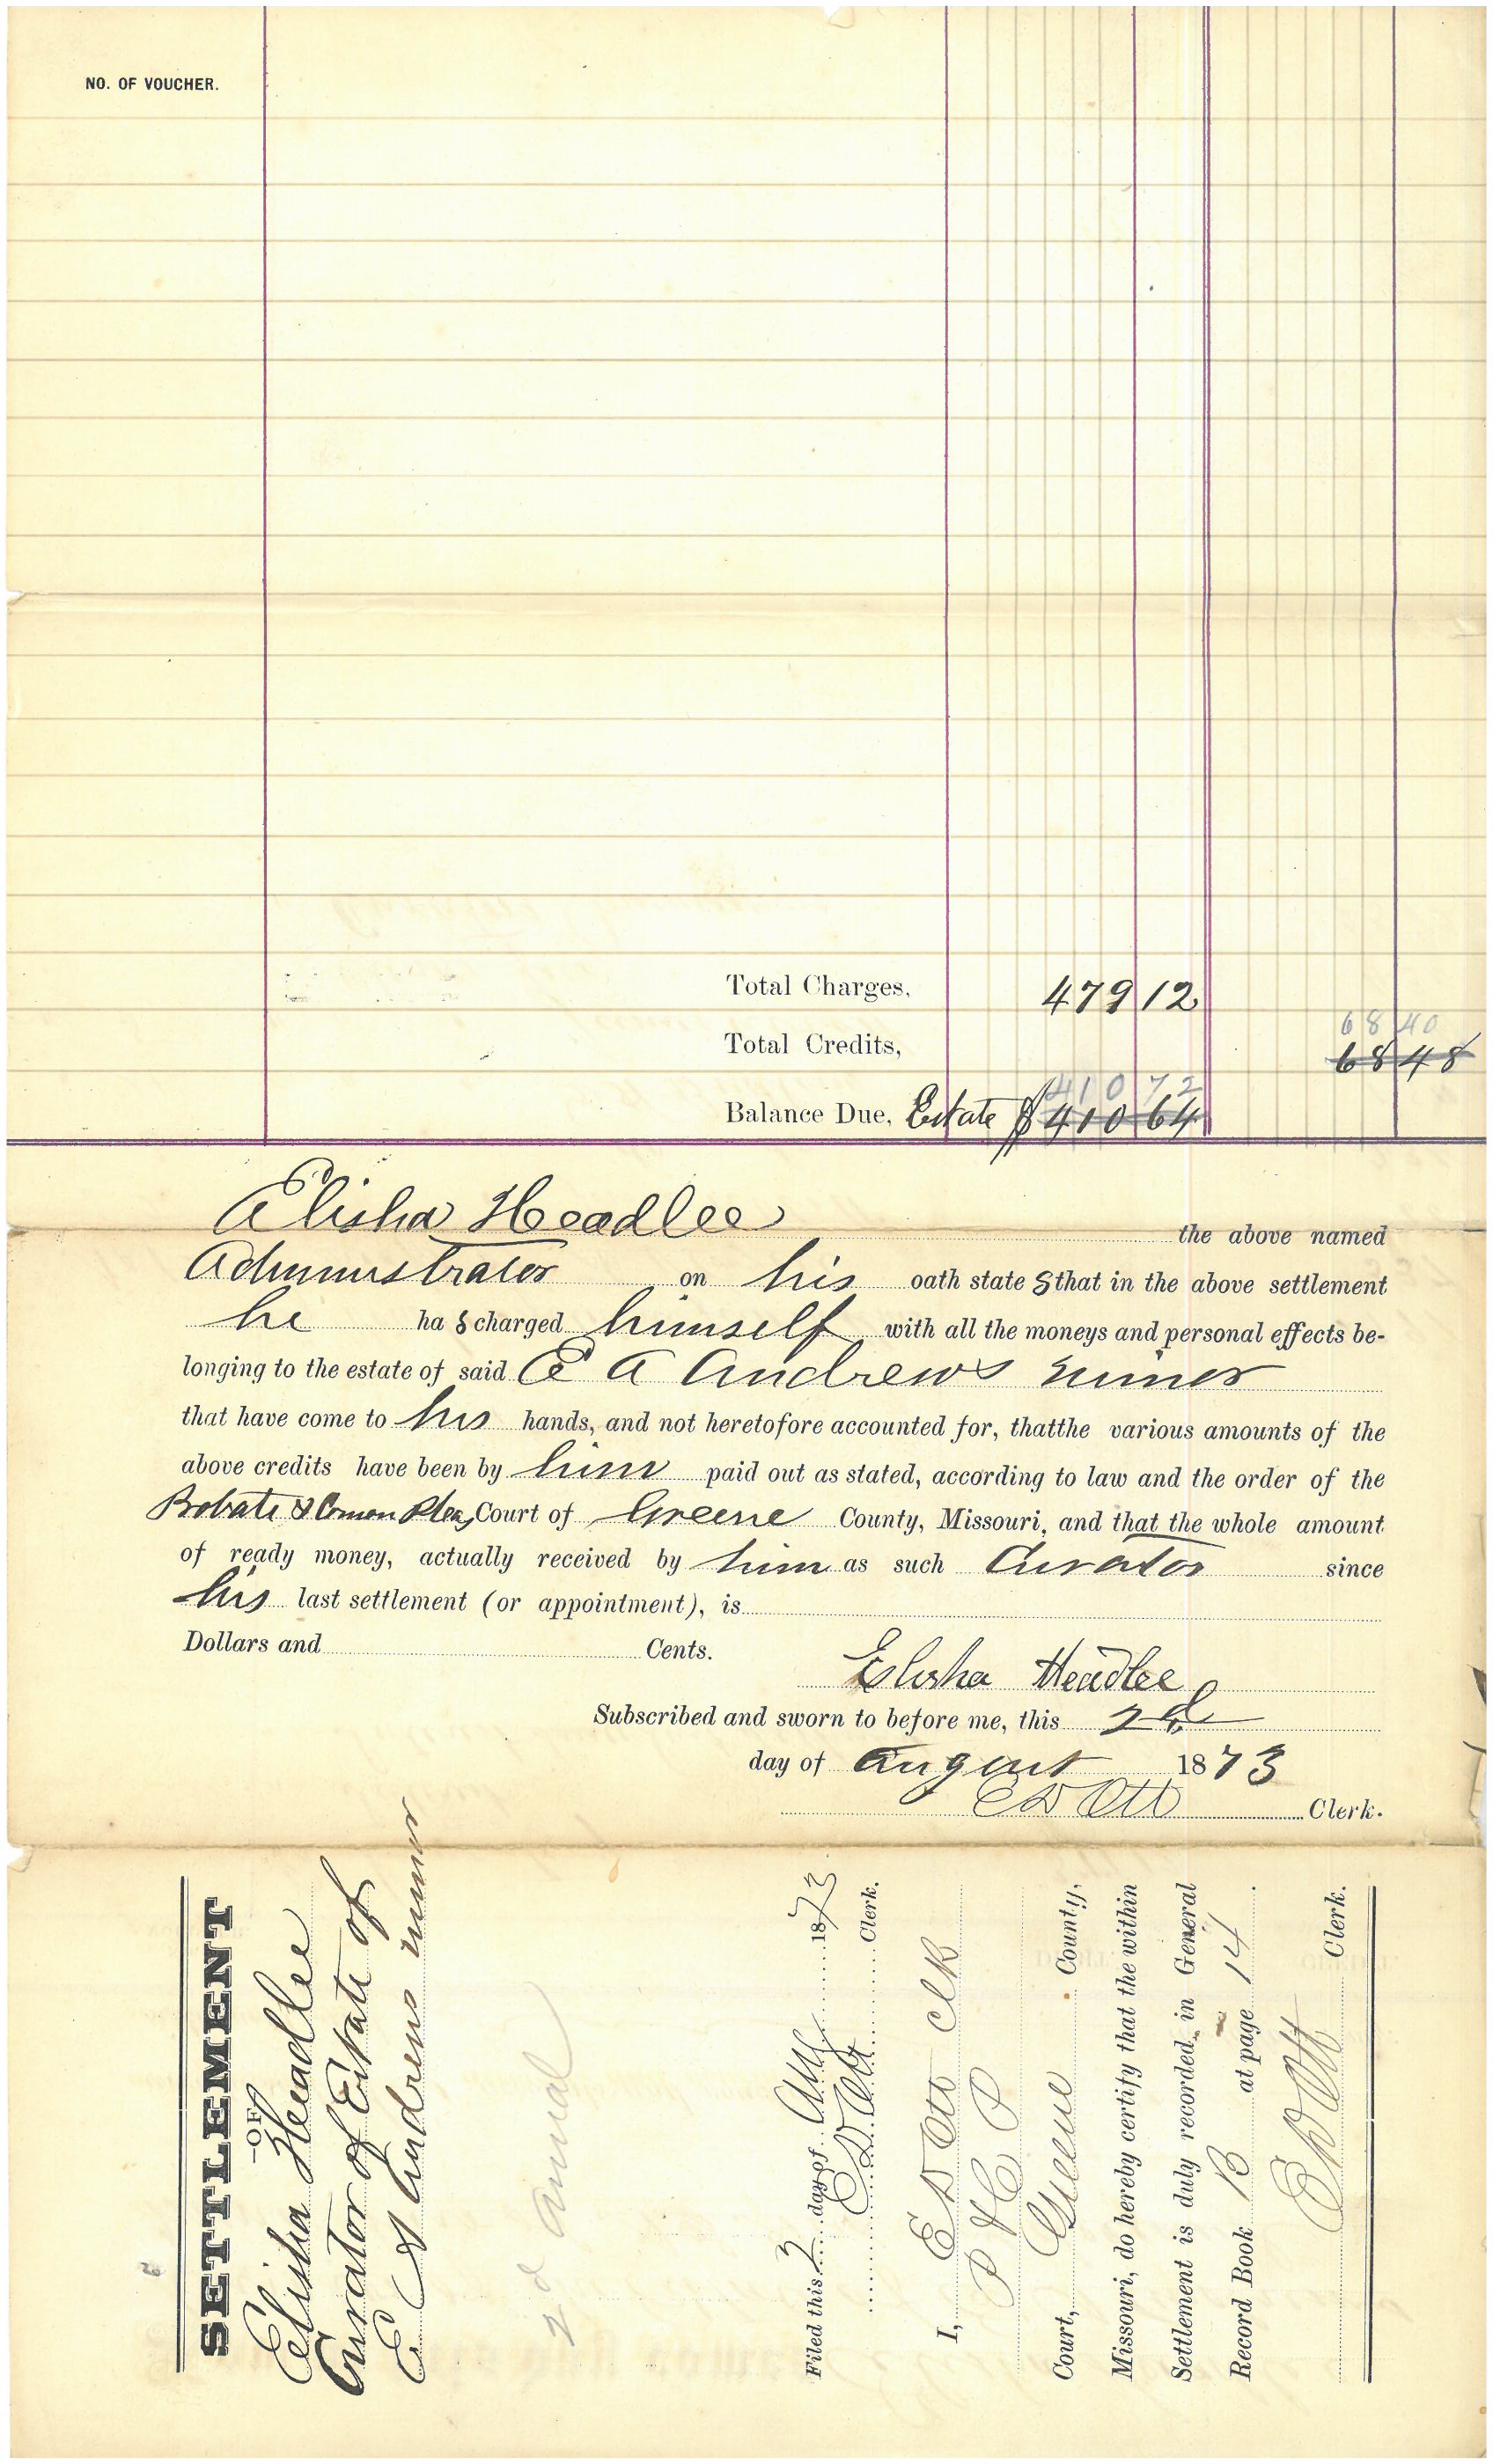 NO. OF VOUCHER.
Total Charges, 479 12
68 40
Total Credits, 68 48
410 72
Balance Due, Estate $ 410 64
Elisha Headlee the above named
Administrator on his oath state s that in the above settlement
he ha s charged himself with all the moneys and personal effects be-
longing to the estate of said E A Andrews minor
that have come to his hands, and not heretofore accounted for, thatthe various amounts of the
above credits have been by him paid out as stated, according to law and the order of the
Probate & Comon Pleas Court of Greene County, Missouri, and that the whole amount
of ready money, actually received by him as such Curator since
his last settlement (or appointment), is
Dollars and Cents.
Elisha Headlee
Subscribed and sworn to before me, this 2d
day of August 1873
E D Ott Clerk.
SETTLEMENT
—OF—
Elisha Headlee
Curator of Estate of
E A Andrews minor
2d Annual
Filed this 2 day of Aug 1873
E D Ott Clerk.
I, E D Ott Clk
P & C P
Court, Greene County,
Missouri, do hereby certify that the within
Settlement is duly recorded in General
Record Book B at page 14.
E D Ott Clerk.